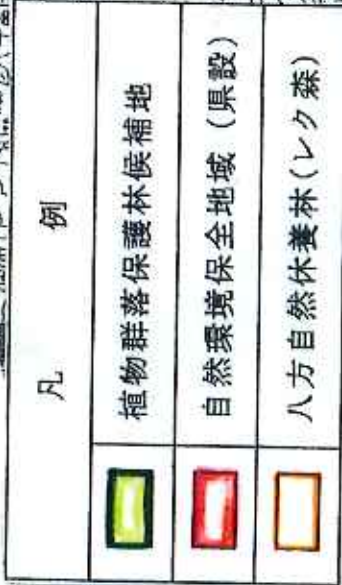 凡例
植物群落保護林候補地
自然環境保全地域（県設）
八方自然休養林（レク森）